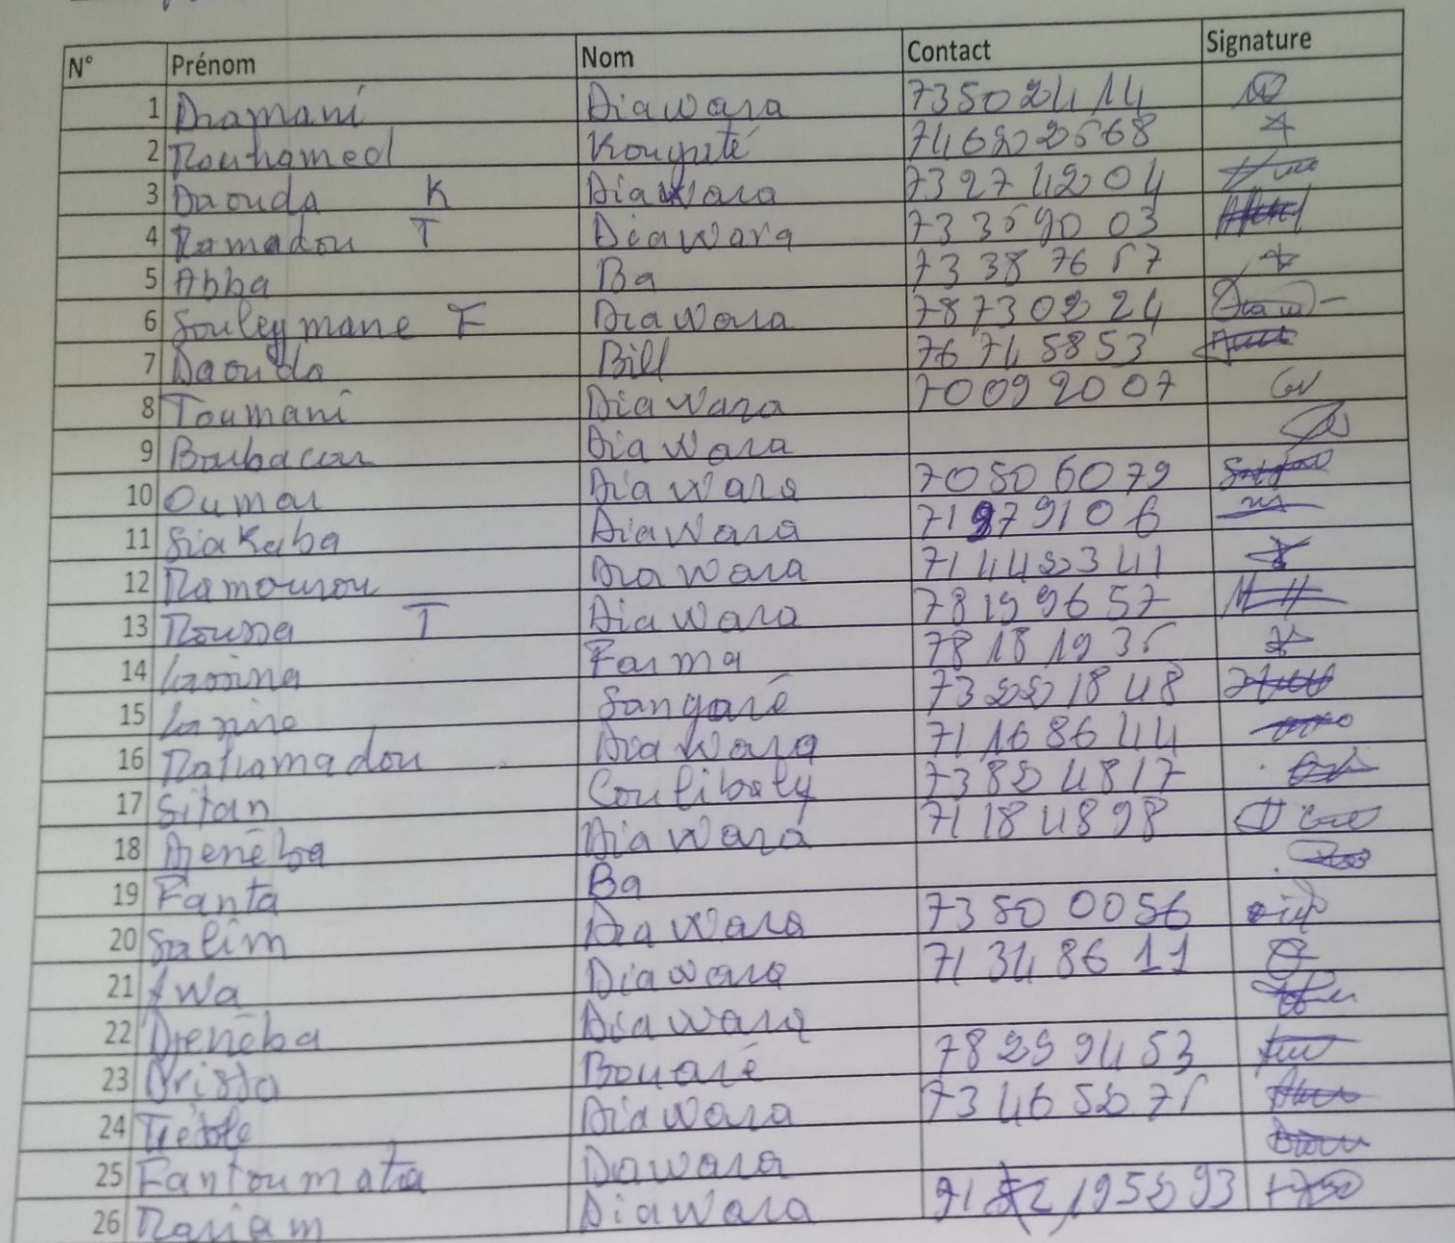 N° Prénom Nom Contact Signature
1 Dramani Diawara 73502414
2 Mouhamed Kouyaté 74622568
3 Daouda K Diawara 73274204
4 Mamadou T Diawara 73359003
5 Abba Ba 73387657
6 Souleymane F Diawara 78730224
7 Daouda Bill 76745853
8 Toumani Diawara 70092007
9 Boubacar Diawara
10 Oumar Diawara 70506079
11 Siakaba Diawara 71979106
12 Mamourou Diawara 71442341
13 Moussa T Diawara 78199657
14 Farma 78181935
15 Lamine Sangaré 73221848
16 Mahamadou Diawara 71168644
17 Sitan Coulibaly 73824817
18 Djenèba Diawara 71184898
19 Fanta Ba
20 Salim Diawara 73500056
21 Awa Diawara 71348611
22 Djenèba Diawara
23 Drissa Bouaré 78299453
24 Diawara 73465275
25 Fantoumata Dawara
26 Mariam Diawara